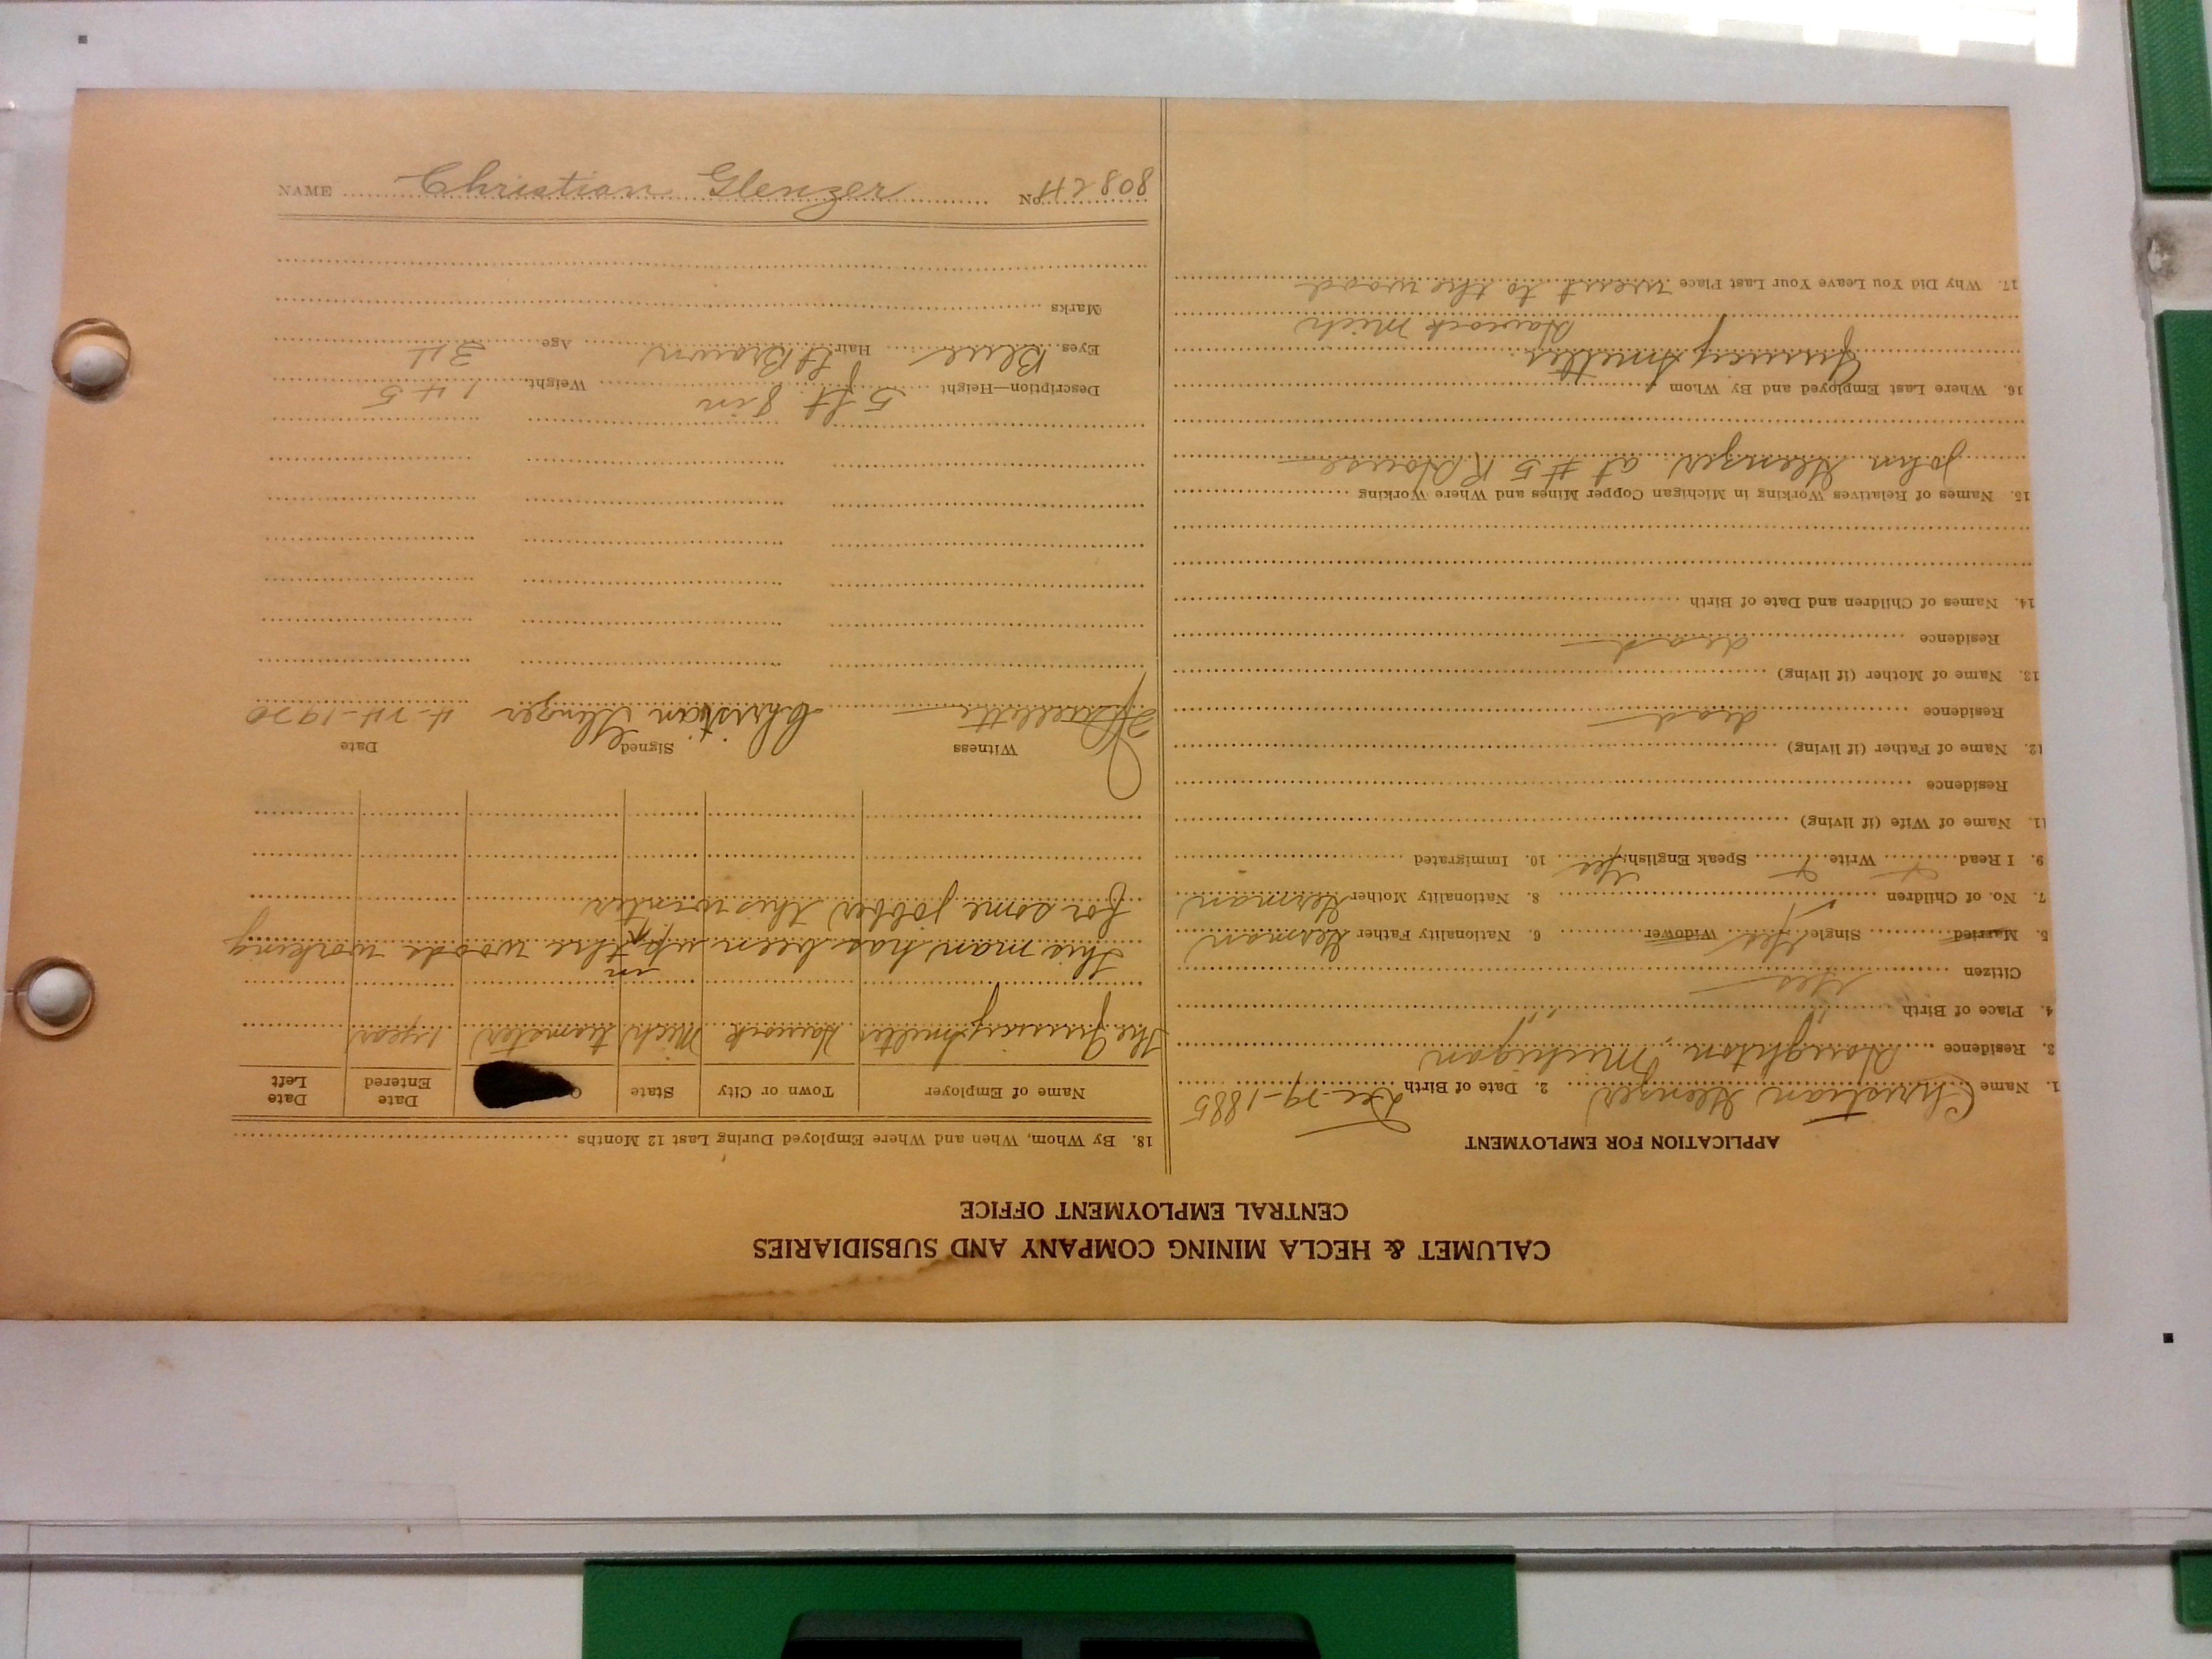 CALUMET & HECLA MINING COMPANY AND SUBSIDIARIES
CENTRAL EMPLOYMENT OFFICE
APPLICATION FOR EMPLOYMENT
1. Name Christian Glenzer 2. Date of Birth Dec-29-1885
3. Residence Houghton, Michigan
4. Place of Birth " "
Citizen Yes
5. Married Single Yes Widower 6. Nationality Father German
7. No. of Children 8. Nationality Mother German
9. I Read Write Speak English Yes 10. Immigrated
11. Name of Wife (if living)
Residence
12. Name of Father (if living)
Residence dead
13. Name of Mother (if living)
Residence dead
14. Names of Children and Date of Birth
15. Names of Relatives Working in Michigan Copper Mines and Where Working
John Glenzer at #5 R House
16. Where Last Employed and By Whom
Quincy Smelter
Hancock Mich
17. Why Did You Leave Your Last Place went to the woods
18. By Whom, When and Where Employed During Last 12 Months
Name of Employer Town or City State Date Entered Date Left
The Quincy Smelter Hancock Mich teamster 1 year
This man has been up in the woods working
for some jobber this winter
Witness Signed Date
Christian Glenzer 4-24-1920
Description—Height 5 ft 8 in Weight 145
Eyes Blue Hair Lt Brown Age 34
Marks
NAME Christian Glenzer No.